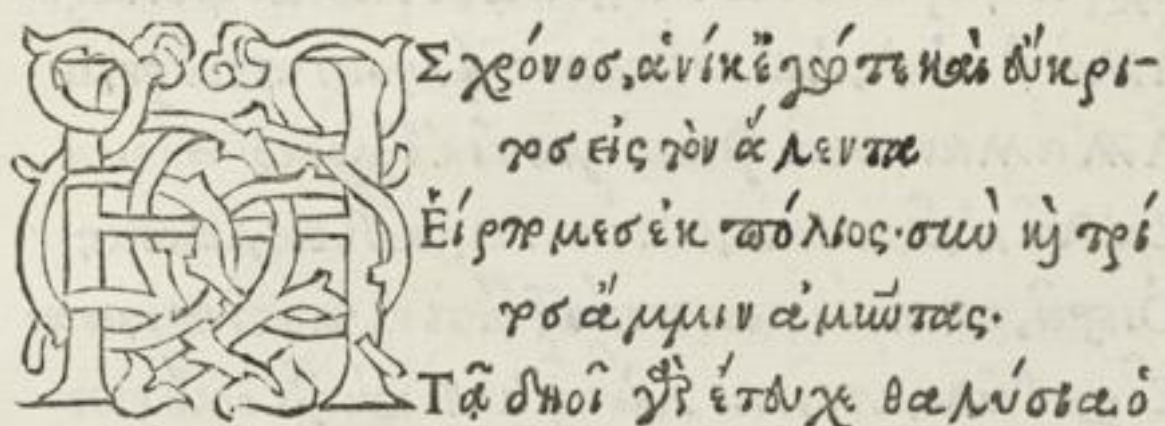 ΗΣ χρόνος, ἁνίκ' ἐγώ τε καὶ Εὔκρι-
τος εἰς τὸν ἅλεντα
Εἵρπομες ἐκ πόλιος· σὺν καὶ τρί
τος ἄμμιν ἀμύντας.
Τᾷ δηοῖ γὰρ ἔτευχε θαλύσια ὁ